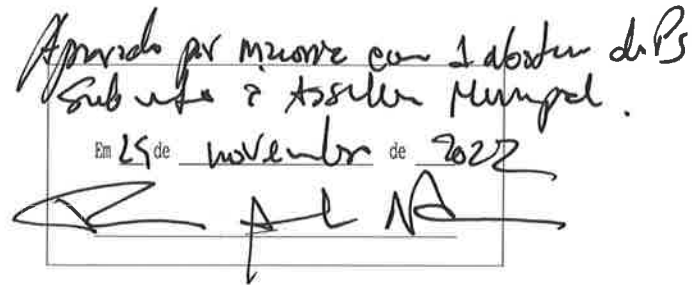 Aprovado por maioria com 1 abstem do PS
Submeta à Assembleia Municipal.
Em 25 de novembro de 2022